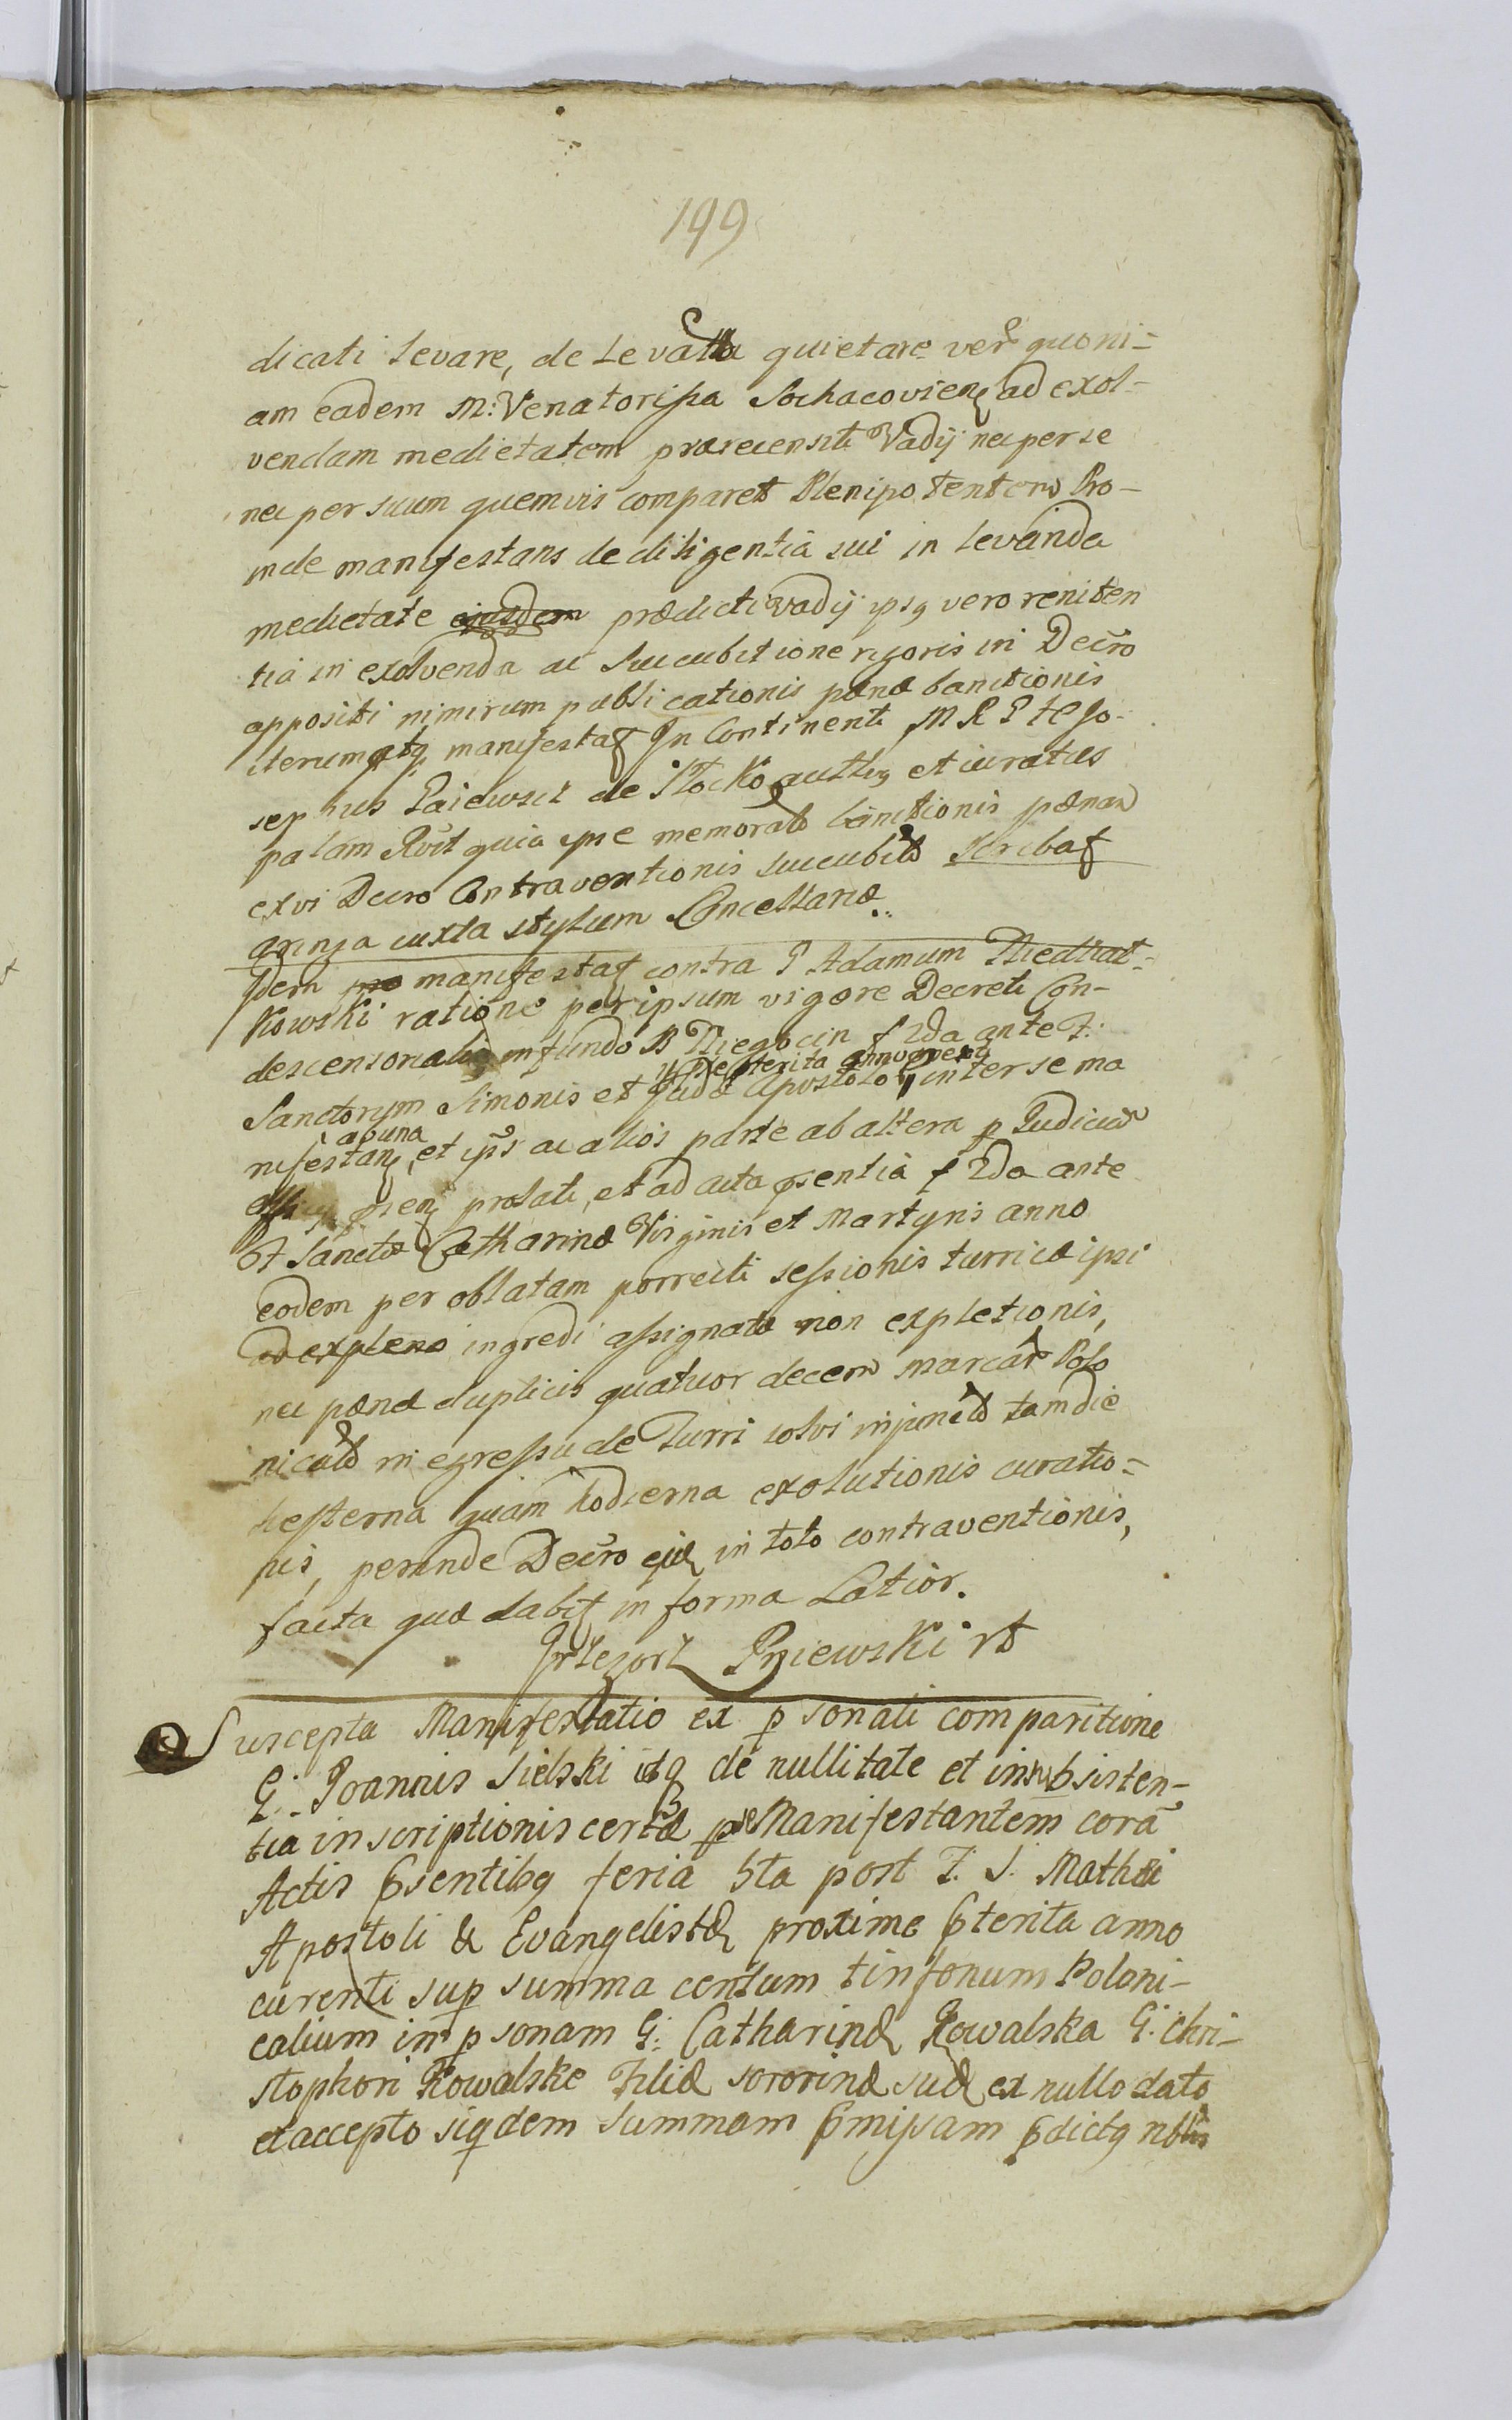 199
dicati levare, de levata quietare vero quoni-
am eadem M: Venatorissa Sochacovien ad exol-
vendam medietatem præecensiti Vadij nec per se
nec per suum quemvis comparet Plenipotentem Pro-
inde manifestans de diligentia sui in levanda
medietate ejusdem prædicti vadij ipsq vero reniten
tia in exolvenda ac succubitione rigoris in Decro
appositi nimirum publicationis pænæ banitionis
iterumqtq manifestat In Continenti M R P te Jo-
sephus de Płocko auth et iuratus
palam Rvit quia ipse memorata banitionis pænam
ex vi Decro Contraventionis succubita scribat
arenga iuxta stylum Cancellariæ
Idem manifestat contra P Adamum
kowski ratione per ipsum vigore Decreti Con-
descensorialis in fundo B f 2da ante F:
Sanctorum Simonis et Judæ Apostolo inter se ma
præterita anno
nifestan et ips ac alios parte ab altera p Judicium
ab una
prolati, et ad acta psentia f 2da ante
F Sanctæ Catharinæ Virginis et Martyris anno
eodem per oblatam porrecti sessionis turricæ ipsi
ad expleno ingredi assignata non expletionis,
nec pænæ duplicis quatuordecem marcar Polo
nical in egressu de Turri solvi injuncta tam die
hesterna quam hodierna exolutionis curatio-
nis, perinde Decro in toto contraventionis,
facta quæ dabit in forma Latior.
Pniewski
Suscepta Manifestatio ex psonali comparitione
G: Joannis Sielski itq de nullitate et insubsisten-
tia inscriptionis certæ p Manifestantem corã
Actis psentibq feria 5ta post F. S. Mathæi
Apostoli & Evangelistæ proxime pterita anno
curenti sup summa centum tinfonum Poloni-
calium in psonam G: Catharinæ Kowalska G: Chri-
stophori Kowalske Filiæ sororinæ suæ ex nullo dato
et accepto siqdem summam pmissam pdictq nblis